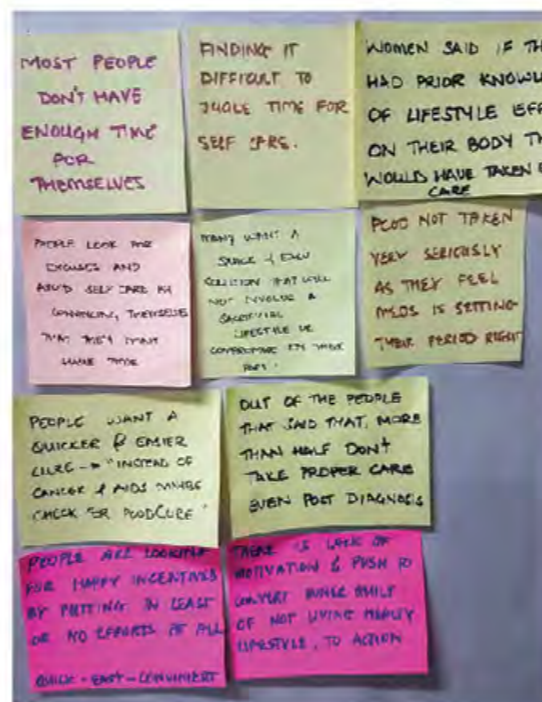 MOST PEOPLE
DON'T HAVE
ENOUGH TIME
FOR
THEMSELVES
FINDING IT
DIFFICULT TO
JUGLE TIME FOR
SELF CARE.
WOMEN SAID IF TH
HAD PRIOR KNOWL
OF LIFESTYLE EFF
ON THEIR BODY TH
WOULD HAVE TAKEN
CARE
PEOPLE LOOK FOR
EXCUSES AND
AVOID SELF CARE BY
CONVINCING THEMSELVES
THAT THEY DON'T
HAVE TIME
MANY WANT A
QUICK & EASY
SOLUTION THAT WILL
NOT INVOLVE A
SACRIFICIAL
LIFESTYLE OR
COMPROMISE ON THEIR
PART.
PCOD NOT TAKEN
VERY SERIOUSLY
AS THEY FEEL
MEDS IS SETTING
THEIR PERIOD RIGHT
PEOPLE WANT A
QUICKER & EASIER
CURE → "INSTEAD OF
CANCER & AIDS MAYBE
CHECK FOR PCOD CURE"
OUT OF THE PEOPLE
THAT SAID THAT, MORE
THAN HALF DON'T
TAKE PROPER CARE
EVEN POST DIAGNOSIS
PEOPLE ARE LOOKING
FOR HAPPY INCENTIVES
BY PUTTING IN LEAST
OR NO EFFORTS AT ALL
QUICK - EASY - CONVINIENT
THERE IS LACK OF
MOTIVATION & PUSH TO
CONVERT INNER GUILT
OF NOT LIVING HEALTHY
LIFESTYLE, TO ACTION